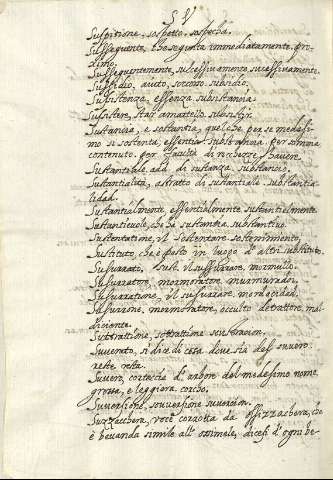 S V
Suspitione, sospetto, sospecha.
Susseguente, che seguita immediatamente, pro-
ximo.
Susseguentemente, successivamente, sucessivamente.
Sussidio, aiuto, socorro, subsidio.
Sussistenza, essenza subsistanzia.
Sussistere, star amartello, subsistir.
Sustanzia, e sostanzia, quel che per se medesi-
mo si sostenta, essentia, substanzia, per somma
contenuto, per facultà di richezze, haver.
Sustantiale add. di sustanza, substancio.
Sustantialità, astratto di sustantiale substantia-
lidad.
Sustantialmente, essentialmente sustantialmente.
Sustantievole, che ha sustantia, substantivo.
Sustentatione, il sostentare sostenimiento.
Sustituto, che è posto in luogo d'altri substituto.
Susurrato, sust. il sussurrare, mormullo.
Susurratore, mormoratore murmurador.
Susurratione, il susurrare, mordacidad.
Susurrone, mormoratore, occulto detrattore, mal
diciente.
Suttrattione, sottrattione sustracion.
Suverato, si dice di cosa dove sia del suvero.
Suvero, corteccia d'arbore del medesimo nome
grossa, e leggiera, corcho.
Suversione, souversione suvercion.
Suzzacchera, voce corrotta da ossizzachera, che
è bevanda simile all'ossimele, dicesi d'ogni be-